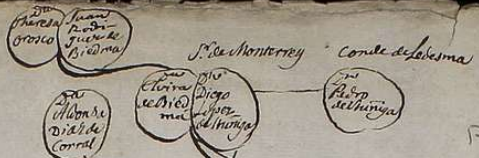 Dª
Theresa
Orosco
Juan
Rodi-
guez de
Biedma
Sr. de Monterrey
Conde de Ledesma
Dª
Elvira
de Bied
ma
Diego
Lopez
deZuñiga
Dn
Pedro
deZuñiga
Dª
Aldonsa
Diaz de
Corral